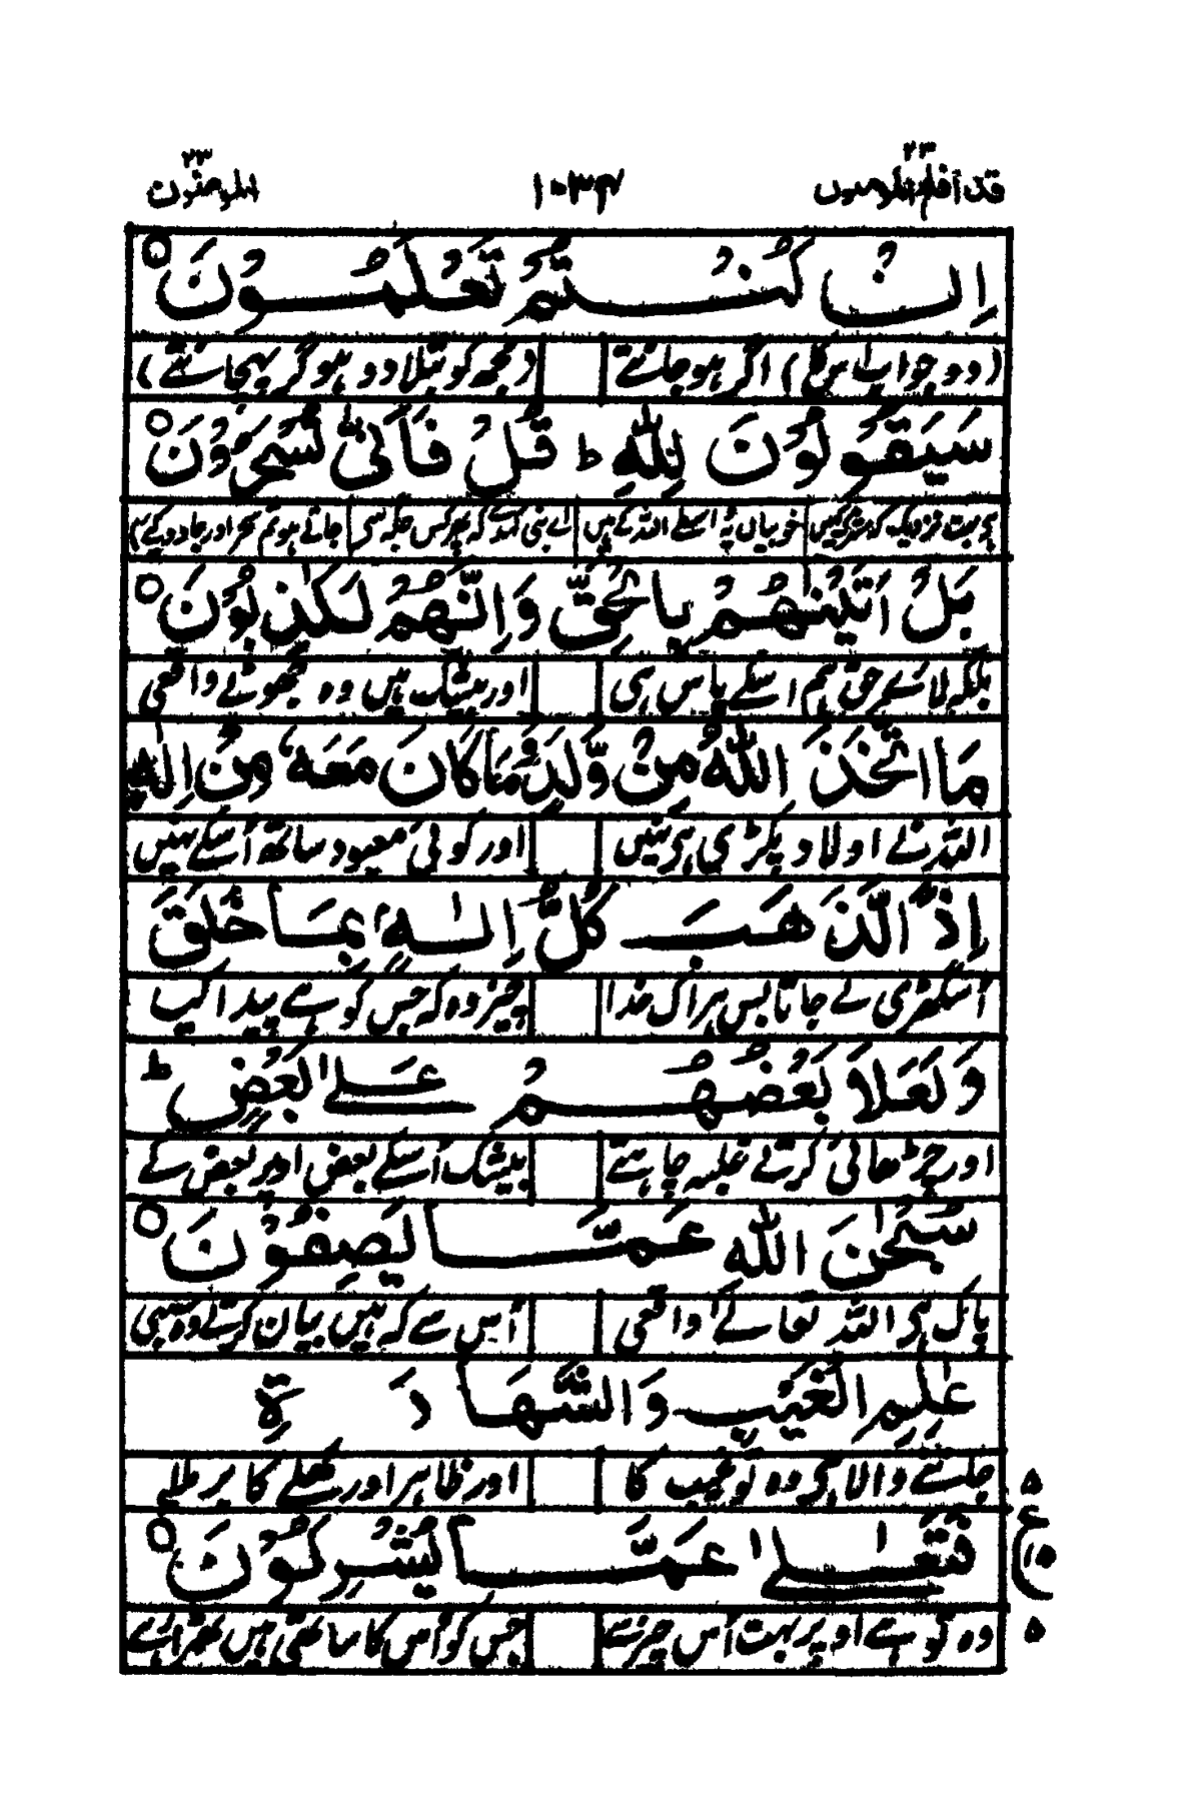 قد افلح المؤمنون ۲۳ ۱۰۳۴ المؤمنون ۲۳
اِنْ كُنْتُمْ تَعْلَمُوْنَ ○
(دو جواب اس کا) اگر ہو جانتے مجھ کو بتلا دو ہو گر پہچانتے)
سَيَقُوْلُوْنَ لِلّٰهِ ؕ قُلْ فَاَنّٰى تُسْحَرُوْنَ ○
خوبیاں اسلئے اللہ کے ہیں جاتے ہو تم
بَلْ اَتَيْنٰهُمْ بِالْحَقِّ وَاِنَّهُمْ لَكٰذِبُوْنَ ○
بلکہ لائے حق ہم اسکے پاس ہی اور بیشک ہیں وہ جھوٹے واقعی
مَا اتَّخَذَ اللّٰهُ مِنْ وَّلَدٍ وَّمَا كَانَ مَعَهٗ مِنْ اِلٰهٍ
اللہ نے اولاد پکڑی ہی نہیں اور کوئی معبود ساتھ اسکے نہیں
اِذًا لَّذَهَبَ كُلُّ اِلٰهٍۭ بِمَا خَلَقَ
لے جاتا بس ہر اک خدا چیز وہ کہ جس کو ہے پیدا کیا
وَلَعَلَا بَعْضُهُمْ عَلٰى بَعْضٍ ؕ
اور چڑھائی کرتے غلبہ چاہتے بیشک اسکے بعض اوپر بعض کے
سُبْحٰنَ اللّٰهِ عَمَّا يَصِفُوْنَ ○
پاک ہی اللہ تعالے واقعی اس سے کہ ہیں بیان کرتے وہ سبھی
عٰلِمِ الْغَيْبِ وَالشَّهَادَةِ
جاننے والا ہی وہ تو غیب کا اور ظاہر اور کھلے کا برملا
فَتَعٰلٰى عَمَّا يُشْرِكُوْنَ ○
وہ تو ہے اوپر بہت اس چیز سے جس کو اس کا ساتھی ہیں
۵
ع
۱۵
۵